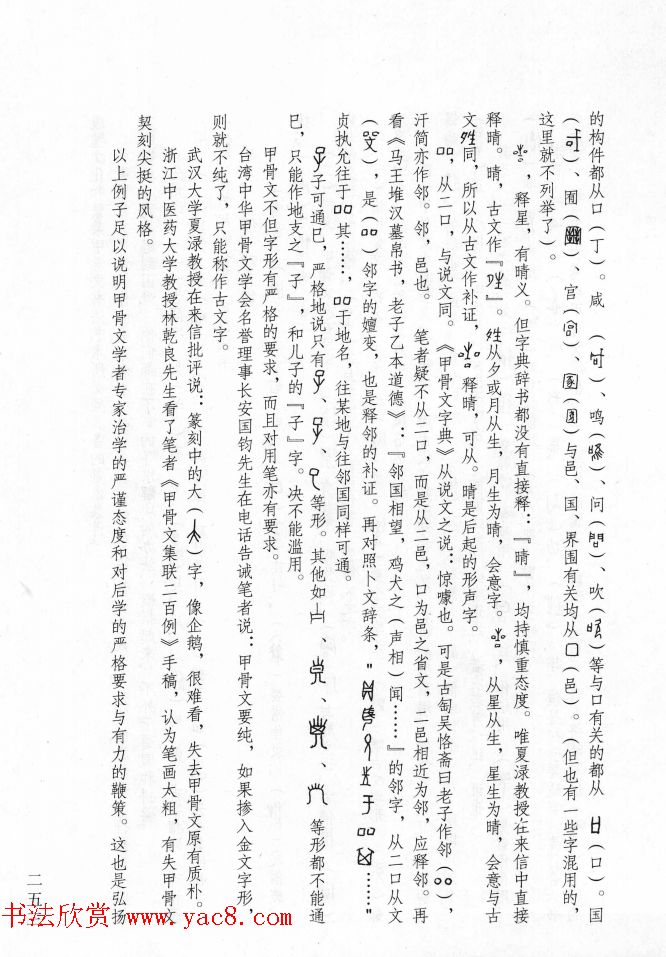 的构件都从口（丁）。咸（）、鸣（）、问（）、吹（）等与口有关的都从（口）。国
（）、囿（）、宫（）、（）与邑、国、界围有关均从口（邑）。（但也有一些字混用的，
这里就不列举了）。
，释星，有晴义。但字典辞书都没有直接释：『晴』，均持慎重态度。唯夏渌教授在来信中直接
释晴。晴，古文作『』。从夕或月从生，月生为晴，会意字。，从星从生，星生为晴，会意与古
文同，所以从古文作补证，释晴，可从。晴是后起的形声字。
，从二口，与说文同。《甲骨文字典》从说文之说：惊嚯也。可是古匋吴恪斋曰老子作邻（），
汗简亦作邻。邻，邑也。 笔者疑不从二口，而是从二邑，口为邑之省文，二邑相近为邻，应释邻。再
看《马王堆汉墓帛书，老子乙本道德》：『邻国相望，鸡犬之（声相）闻……』的邻字，从二口从文
（），是（）邻字的嬗变，也是释邻的补证。再对照卜文辞条，"……"
贞执允往于其……，于地名，往某地与往邻国同样可通。
子可通巳，严格地说只有、、等形。其他如、、、等形都不能通
巳，只能作地支之『子』，和儿子的『子』字。决不能滥用。
甲骨文不但字形有严格的要求，而且对用笔亦有要求。
台湾中华甲骨文学会名誉理事长安国钧先生在电话告诫笔者说：甲骨文要纯，如果掺入金文字形，
则就不纯了，只能称作古文字。
武汉大学夏渌教授在来信批评说：篆刻中的大（）字，像企鹅，很难看，失去甲骨文原有质朴。
浙江中医药大学教授林乾良先生看了笔者《甲骨文集联二百例》手稿，认为笔画太粗，有失甲骨文
契刻尖挺的风格。
以上例子足以说明甲骨文学者专家治学的严谨态度和对后学的严格要求与有力的鞭策。这也是弘扬
二五
书法欣赏 www.yac8.com